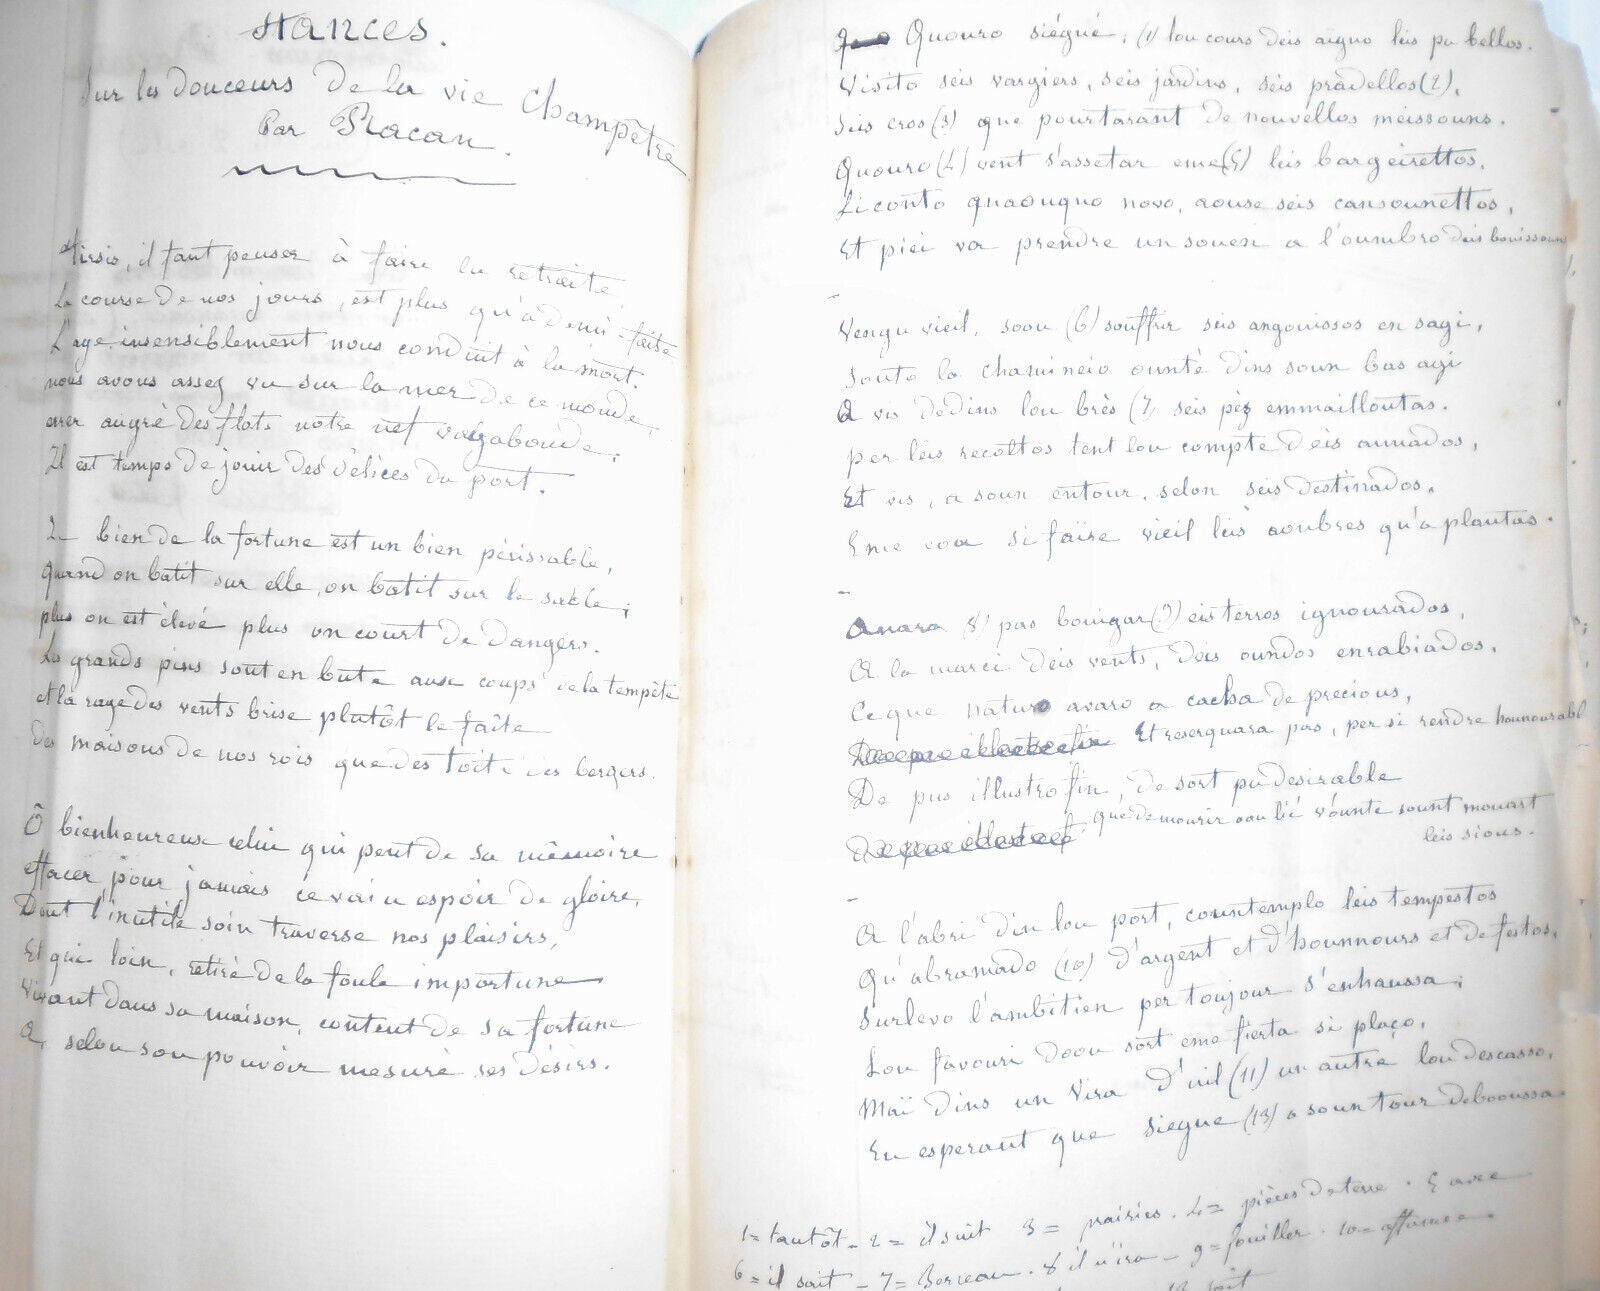 Stances.
Sur les douceurs De la vie Champêtre
Par Racan.
Tirsis, il faut penser à faire la retraite,
La course De nos jours, est plus qu'à demi-faite
L'age insensiblement nous conduit à la mort.
nous avons assez vu sur la mer De ce monde,
errer au gré Des flots notre nef vagabonde;
Il est temps De jouir Des Délices Du port.
Le bien De la fortune est un bien périssable,
quand on batit sur elle, on batit sur le sable;
plus on est élevé plus on court De Dangers.
Les grands pins sont en bute aux coups De la tempête
et la rage Des vents brise plutôt le faîte
Des maisons De nos rois que Des toits Des bergers.
Ô bienheureux celui qui peut De sa mémoire
effacer pour jamais ce vain espoir De gloire,
Dont l'inutile soin traverse nos plaisirs,
Et qui loin, retiré De la foule importune
Vivant Dans sa maison, content De sa fortune
A, selon son pouvoir mesuré ses Désirs.
Quouro siégué, (1) lou cours Deis aiguo leis pu bellos.
Visito seis vargiers, seis jardins, seis pradellos (2),
Seis cros (3) que pourtarant De nouvellos meissouns.
Quouro (4) vent s'assetar eme (5) leis bargeirettos,
Li conto quaouquo novo, aouse seis cansounettos,
Et piei va prendre un souen a l'oumbro Deis bouissouns
Vengu vieil, soou (6) souffrir seis angouissos en sagi,
Souto la chamineio ounté Dins soun bas agi
A vis DeDins lou brès (7) seis pèz emmailloutas.
per leis recoltos tent lou compte Deis annados,
Et vis, a soun entour, selon seis Destinados,
Eme eou si faïre vieil leis aoubres qu'a plantas.
Anara (8) pas bouigar (9) eis terros ignourados,
A la marci Deis vents, Deis oundos enrabiados,
Ce que naturo avaro a cacha De precious,
Et reserquara pas, per si rendre hounourabl
De pus illustro fin, De sort pu Desirable
que De mourir oou lié v'ounte sount mouart
leis sious.
A l'abri Din lou port, countemplo leis tempestos
Qu'abramado (10) D'argent et D'hounnours et De festos,
Surlevo l'ambitien per toujour s'enhaussa;
Lou favouri Doou sort eme fierta si plaço,
Maï Dins un Vira D'uil (11) un autre lou Descasso,
En esperant que siegue (13) a soun tour Deboussa.
1= tantôt - 2= il suit 3= prairies. 4= pièces De terre. 5 avec
6= il sait - 7= Berceau. 8 il n'ira - 9= fouiller. 10= affamée.